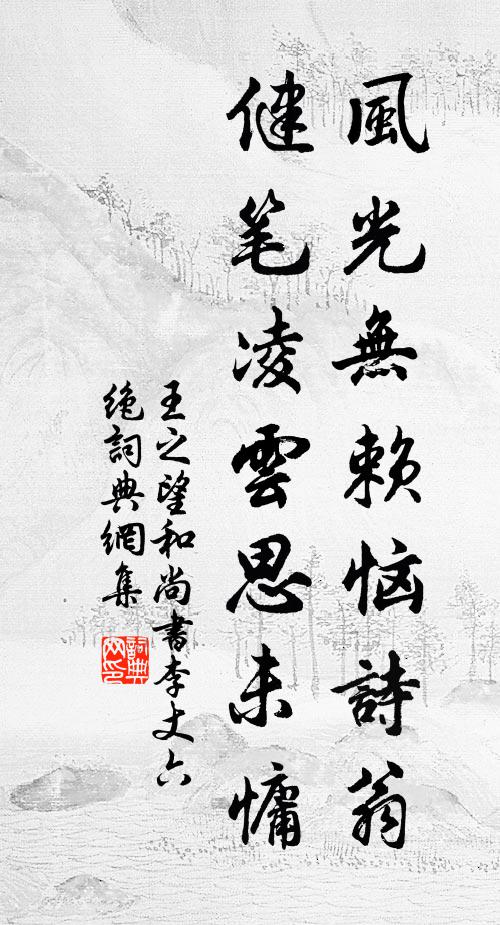 風光無賴惱詩翁
健笔凌雲思未慵
王之望和尚書李丈六
绝詞典網集
詞典
网印